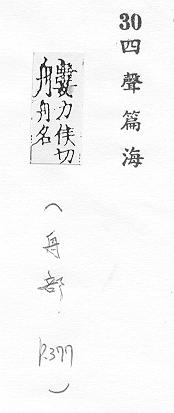 30四聲篇海
力侠切
舟名
(舟部. P.377)